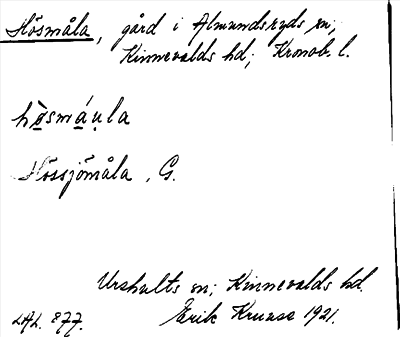 Hösmåla, gård i Almundsryds sn;
Kinnevalds hd; Kronob. l.
hø̀smáu̯la
Hössjömåla, G.
Urshults sn; Kinnevalds hd.
LAL. 877. Erik Kruuse 1921.